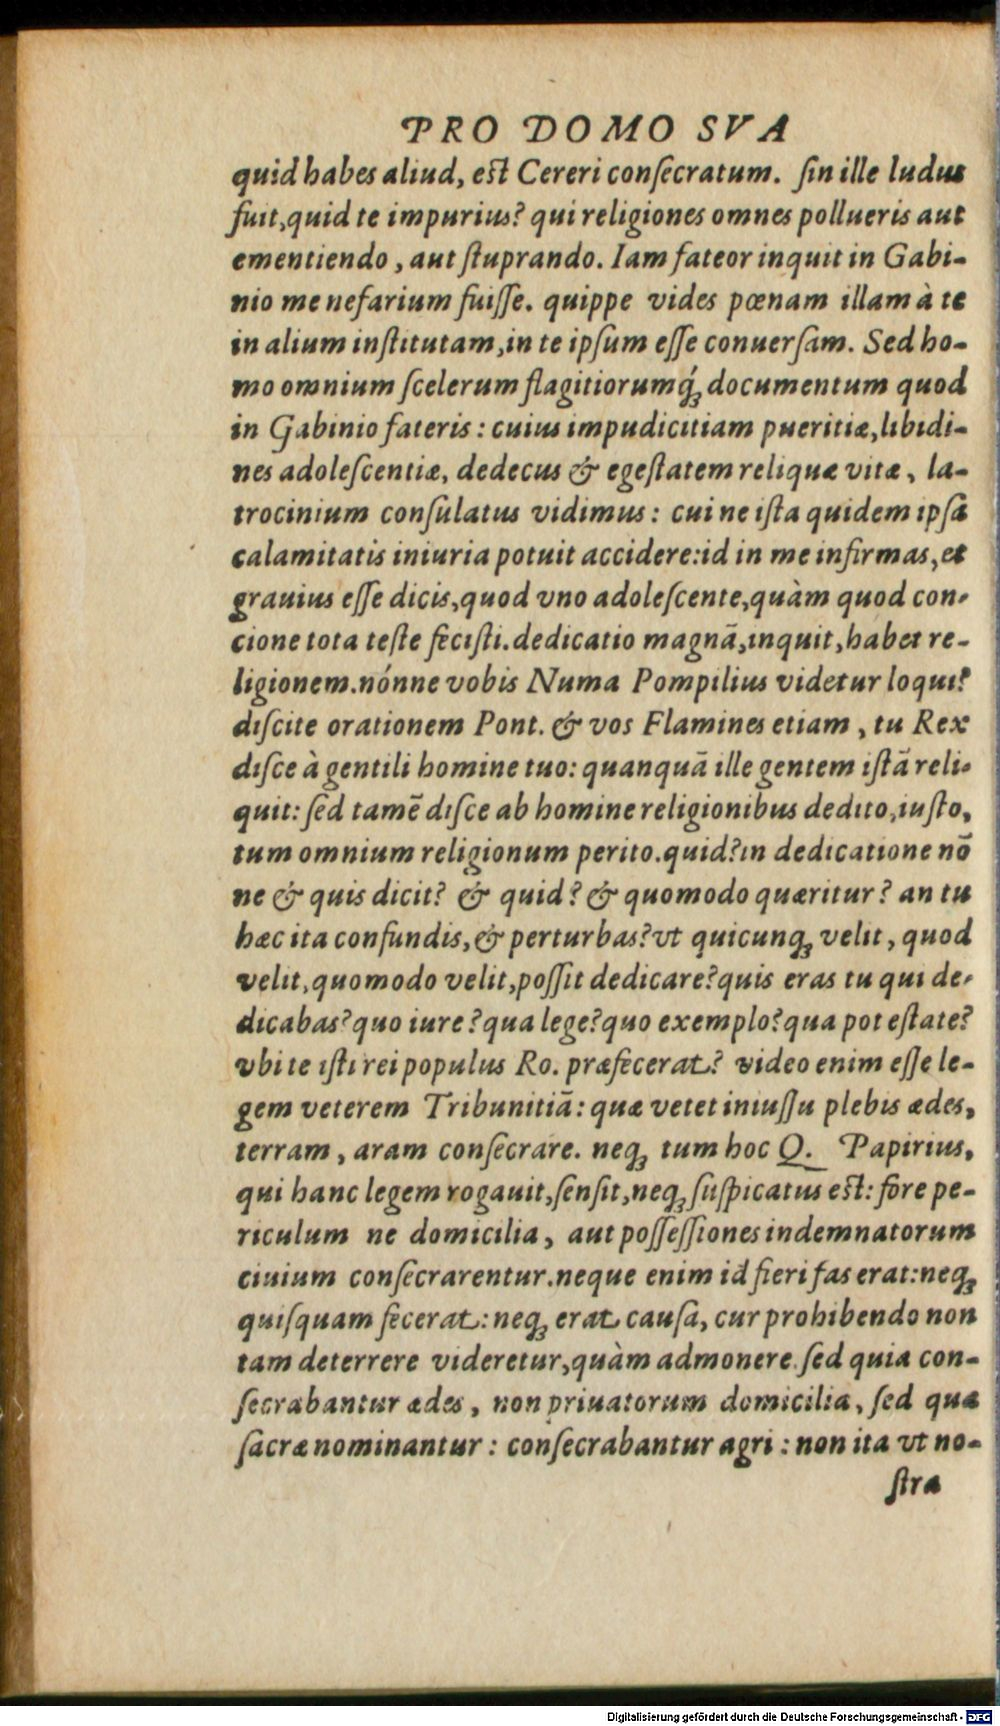 PRO DOMO SVA
quid habes aliud, est Cereri conſecratum. ſin ille ludus
fuit, quid te impurius? qui religiones omnes pollueris aut
ementiendo, aut ſtuprando. Iam fateor inquit in Gabi-
nio me nefarium fuiſſe. quippe vides pœnam illam à te
in alium inſtitutam, in te ipſum eſſe conuerſam. Sed ho-
mo omnium ſcelerum flagitiorumq́ꝫ documentum quod
in Gabinio fateris: cuius impudicitiam pueritiæ, libidi-
nes adoleſcentiæ, dedecus & egeſtatem reliquæ vitæ, la-
trocinium conſulatus vidimus: cui ne iſta quidem ipſa
calamitatis iniuria potuit accidere: id in me infirmas, et
grauius eſſe dicis, quod vno adoleſcente, quàm quod con-
cione tota teſte feciſti. dedicatio magnã, inquit, habet re-
ligionem. nónne vobis Numa Pompilius videtur loqui?
diſcite orationem Pont. & vos Flamines etiam, tu Rex
diſce à gentili homine tuo: quanquã ille gentem iſtã reli-
quit: ſed tamẽ diſce ab homine religionibus dedito, iuſto,
tum omnium religionum perito. quid? in dedicatione nõ
ne & quis dicit? & quid? & quomodo quæritur? an tu
hæc ita confundis, & perturbas? vt quicunqꝫ velit, quod
velit, quomodo velit, poſſit dedicare? quis eras tu qui de-
dicabas? quo iure? qua lege? quo exemplo? qua poteſtate?
vbi te iſti rei populus Ro. præfecerat? video enim eſſe le-
gem veterem Tribunitiã: quæ vetet iniuſſu plebis ædes,
terram, aram conſecrare. neqꝫ tum hoc Q. Papirius,
qui hanc legem rogauit, ſenſit, neqꝫ ſuſpicatus est: fore pe-
riculum ne domicilia, aut poſſeſſiones indemnatorum
ciuium conſecrarentur. neque enim id fieri fas erat: neqꝫ
quiſquam fecerat: neqꝫ erat cauſa, cur prohibendo non
tam deterrere videretur, quàm admonere. ſed quia con-
ſecrabantur ædes, non priuatorum domicilia, ſed quæ
ſacræ nominantur: conſecrabantur agri: non ita vt no-
ſtra
Digitalisierung gefördert durch die Deutsche Forschungsgemeinschaft - DFG